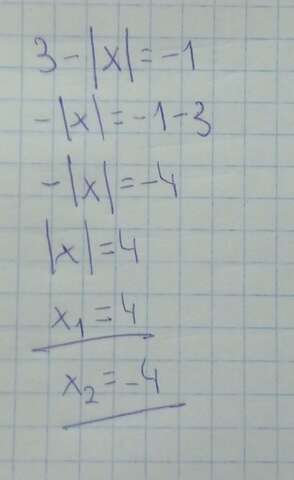 3-|x|=-1
-|x|=-1-3
-|x|=-4
|x|=4
x₁=4
x₂=-4